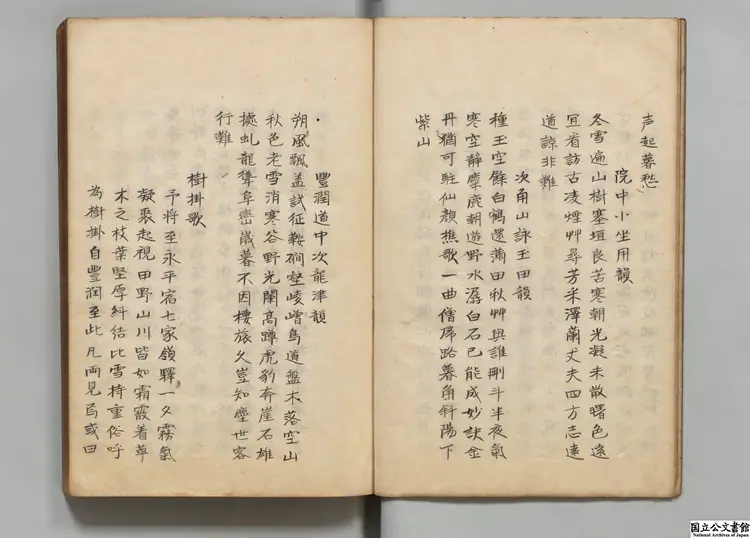 声起暮愁
院中小坐用韻
冬雪遍山樹塞垣良苦寒朝光凝未散曙色遠
宜看訪古凌煙艸尋芳采澤蘭丈夫四方志遠
道諒非難
次角山詠玉田韻
種玉空餘白鶴還蒲田秋艸與誰刪斗半夜氣
寒空静麋鹿朝遊野水潺白石已能成妙訣金
丹猶可駐仙顔樵歌一曲僧帰路暮角斜陽下
紫山
豐潤道中次龍津韻
朔風飄盖試征鞍磵壑崚嶒鳥道盤木落空山
秋色老雪消寒谷野光闌高蹲虎豹奔崖石雄
攄虬龍聳阜巒歳暮不因棲旅久豈知塵世客
行難
樹掛歌
予将至永平宿七家嶺驛一夕霧氣
凝聚起視田野山川皆如霜霰着草
木之枝葉堅厚糾結比雪持重俗呼
為樹掛自豐润至此凡両見焉或曰
国立公文書館
National Archives of Japan